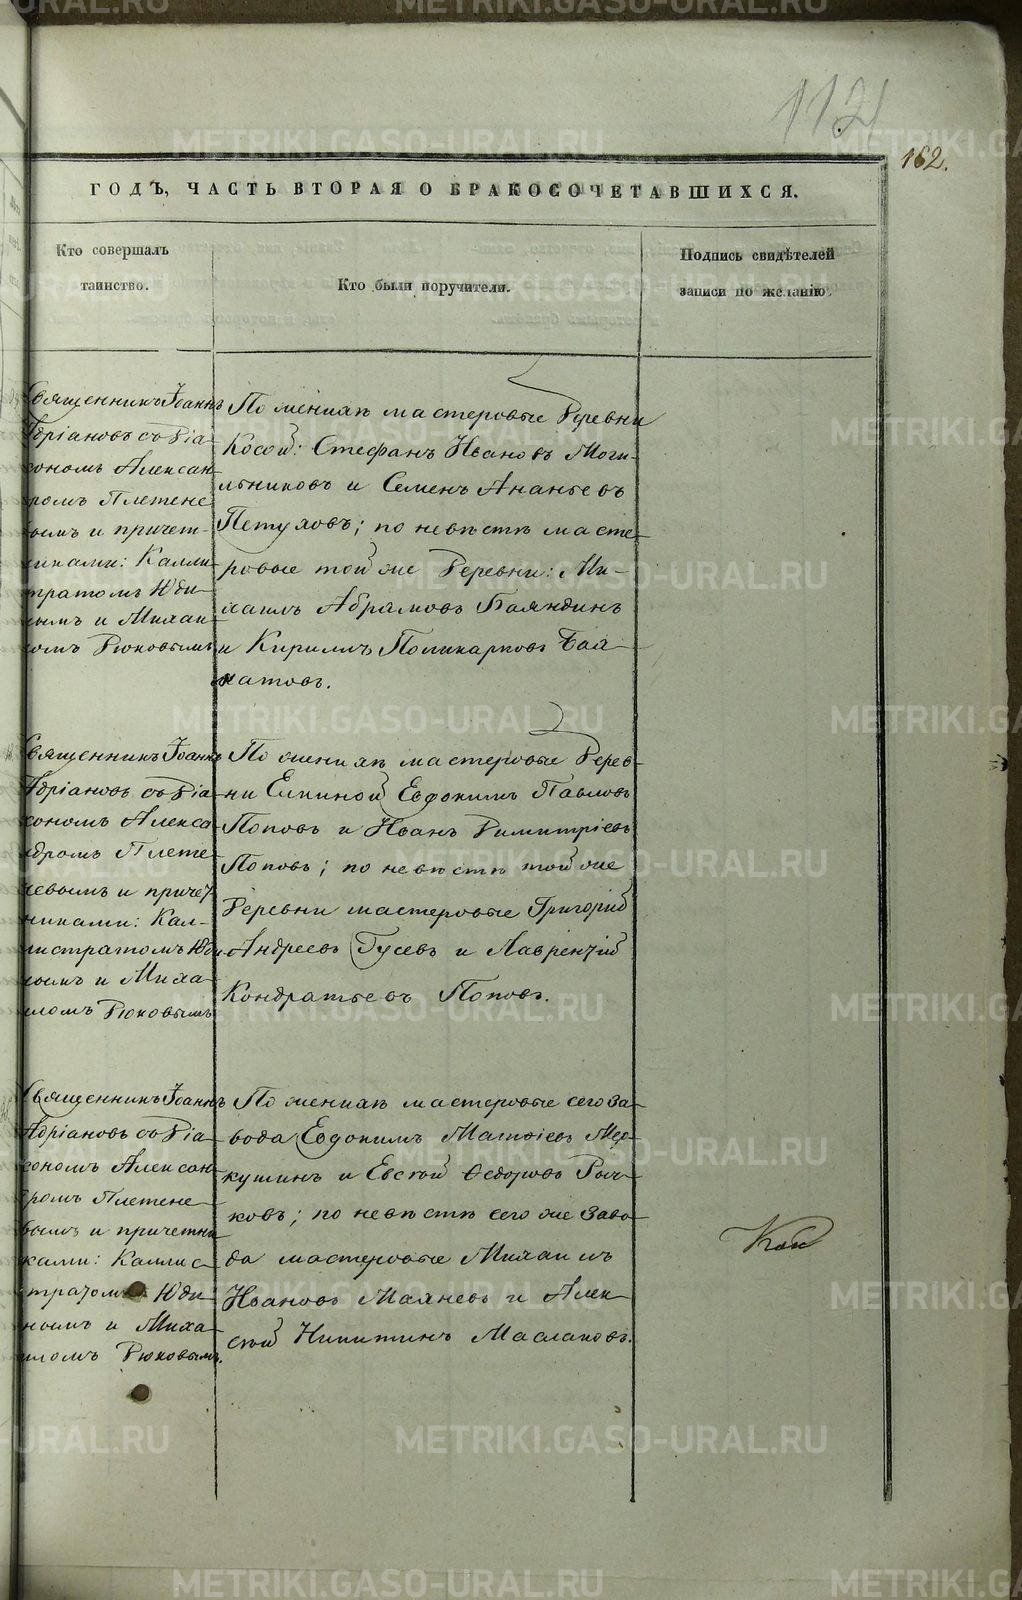 112
162.
ГОДЪ, ЧАСТЬ ВТОРАЯ О БРАКОСОЧЕТАВШИХСЯ.
Кто совершалъ
таинство.
Кто были поручители.
Подпись свидѣтелей
записи по желанію.
Священникъ Іоаннъ
Адріановъ съ Діа-
кономъ Алексан
ромъ Плетене
вымъ и причет-
никами: Калли
тратомъ Юди
нымъ и Михаи
ломъ Рюковымъ
По женихѣ мастеровые Деревни
Косой: Стефанъ Ивановъ Моги-
льниковъ и Семенъ Ананьевъ
Петуховъ; по невѣстѣ масте-
ровые той же Деревни: Ми-
хаилъ Абрамовъ Баяндинъ
и Кирилъ Поликарповъ
Священникъ Іоаннъ
Адріановъ съ Діа-
кономъ Алекса
ндромъ Плете
невымъ и причет
никами: Кал-
листратомъ Юди
нымъ и Миха-
иломъ Рюковымъ
По женихѣ мастеровые Дерев-
ни Елкиной Евдокимъ Павловъ
Поповъ и Иванъ Димитріевъ
Поповъ; по невѣстѣ той же
Деревни мастеровые Григорій
Андреевъ Гусевъ и Лаврентій
Кондратьевъ Поповъ.
Священникъ Іоаннъ
Адріановъ съ Діа-
кономъ Алексан-
ромъ Плетене-
вымъ и причетни
ками: Каллис-
тратомъ Юди-
нымъ и Миха-
иломъ Рюковымъ.
По женихѣ мастеровые сего за-
вода Евдокимъ Матѳіевъ Мер-
кушинъ и Евсѣй Ѳедоровъ Рыч-
ковъ; по невѣстѣ сего же заво-
да мастеровые Михаилъ
Ивановъ Махневъ и Алек-
сѣй Никитинъ Маслаковъ.
METRIKI.GASO-URAL.RU